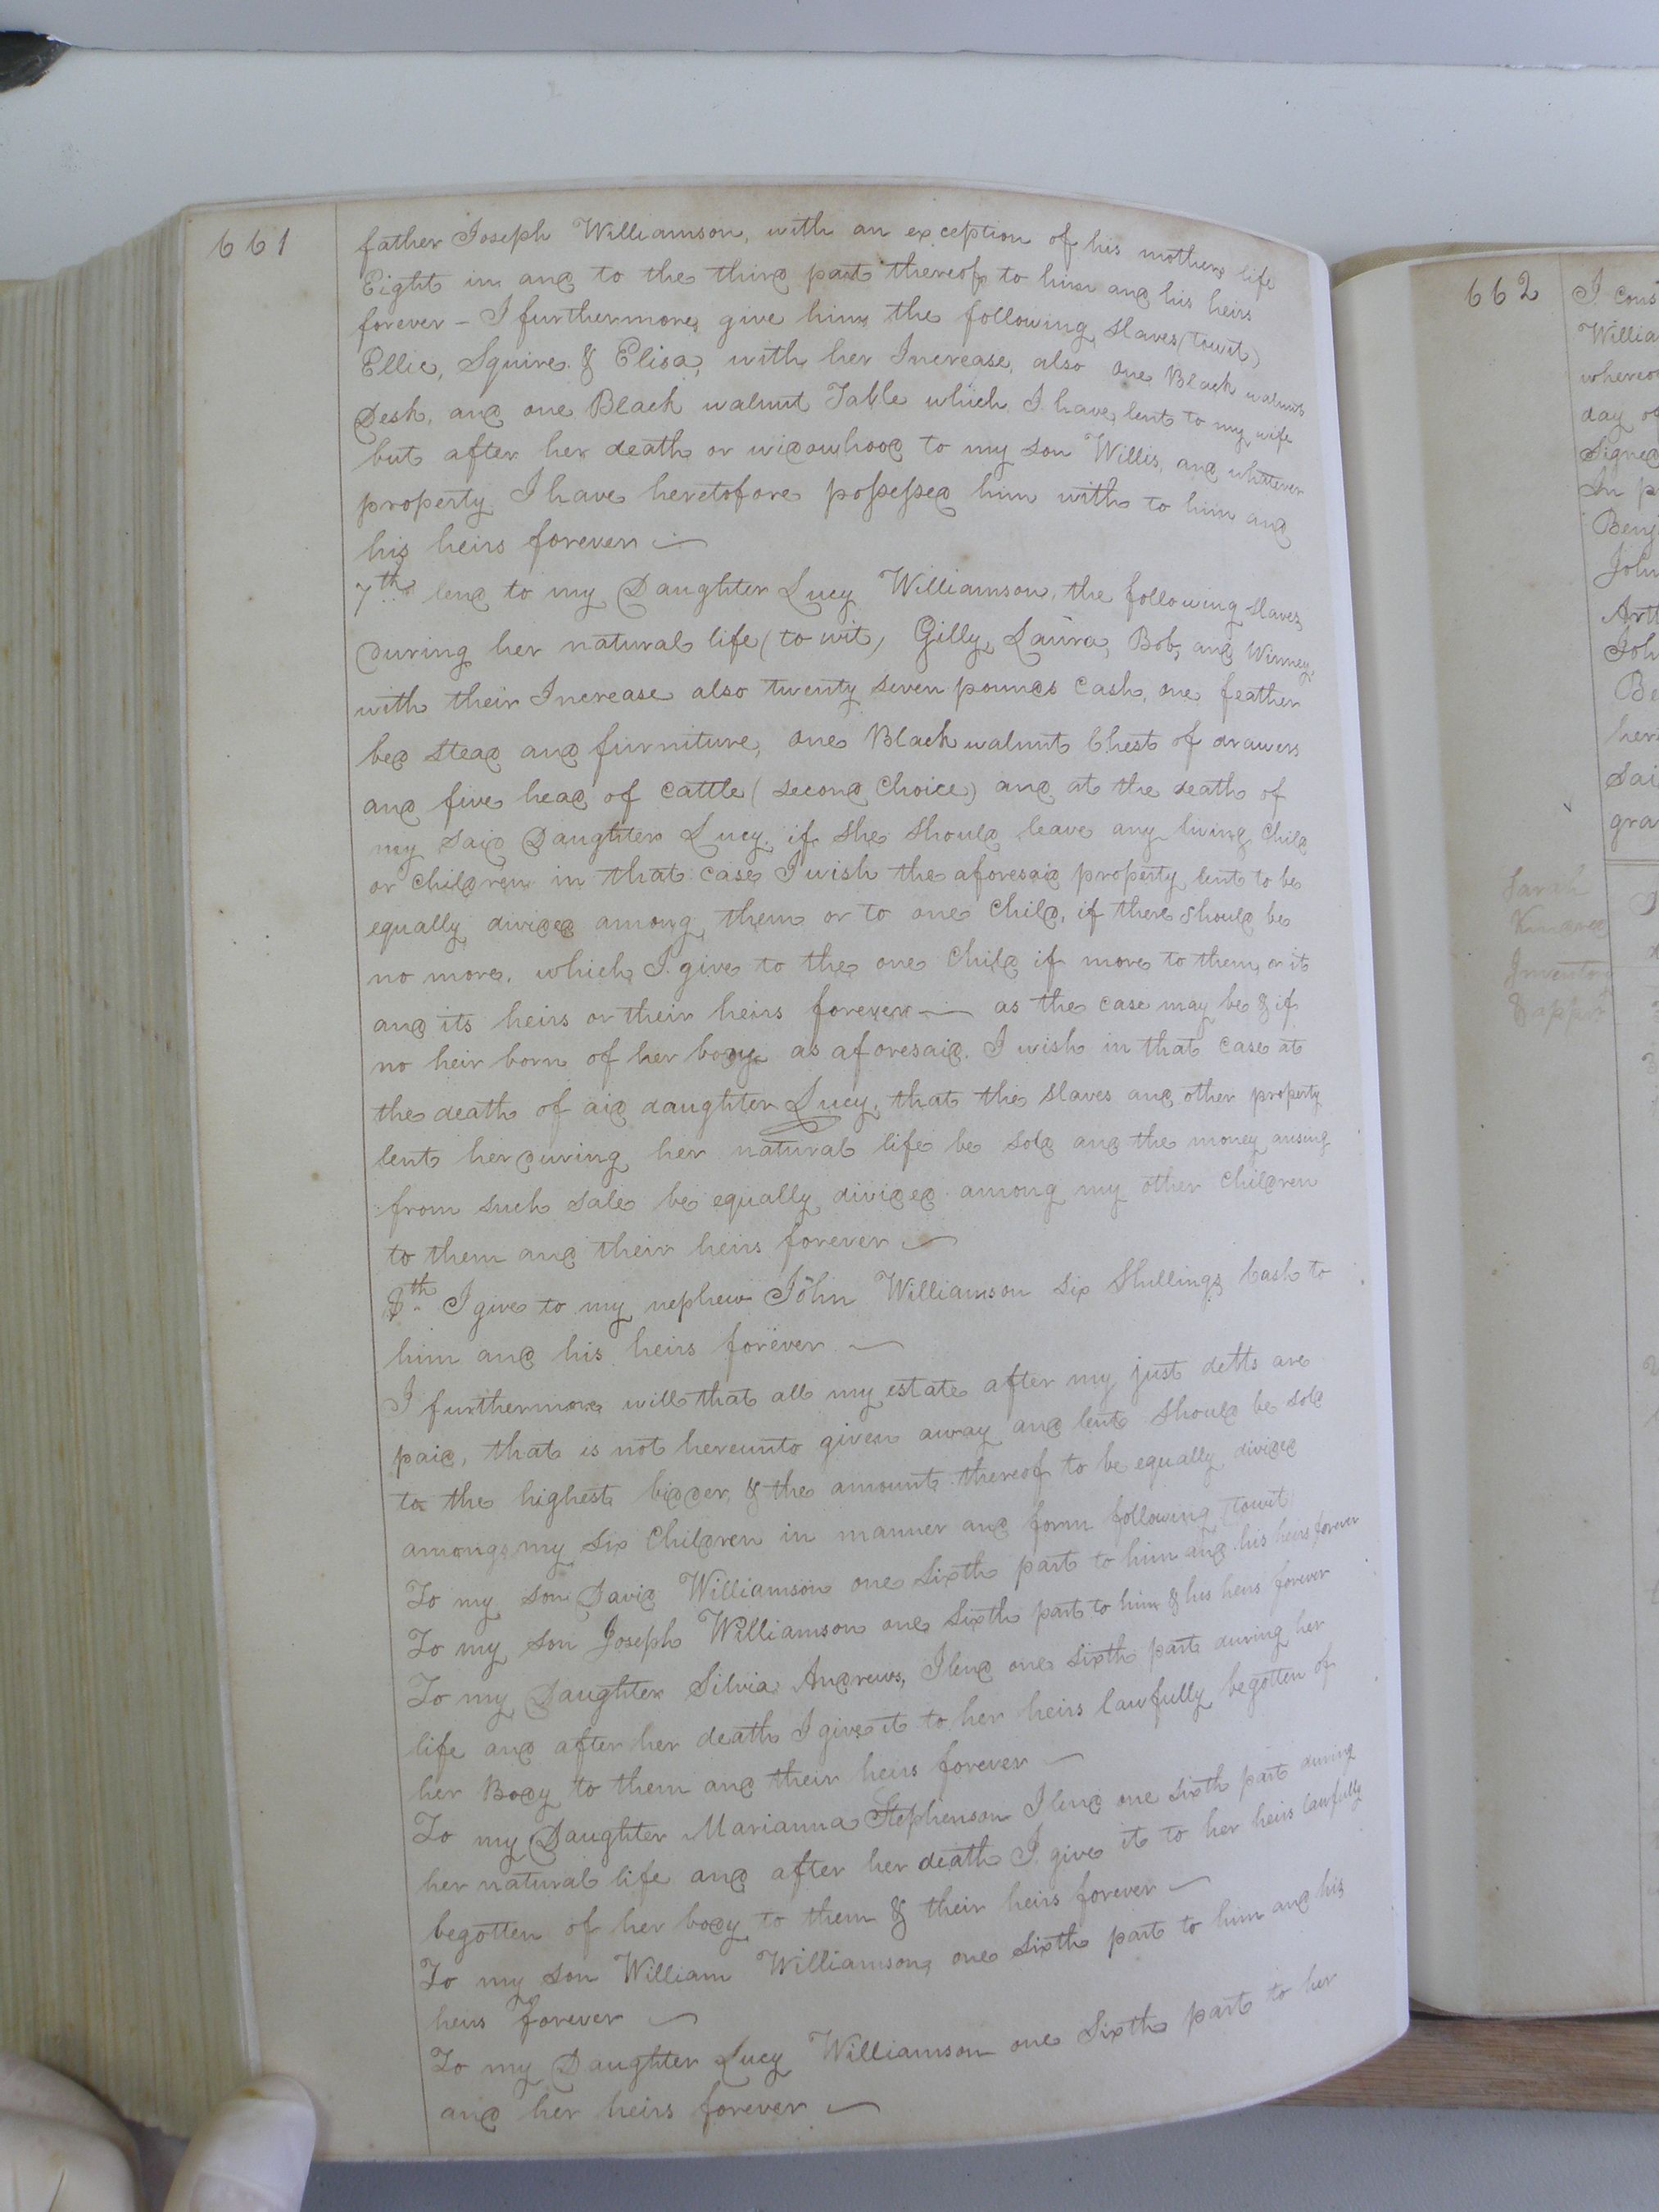 661
father Joseph Williamson, with an exception of his mothers life
Eight in and to the third part thereof to him and his heirs
forever - I furthermore give him the following slaves (towit)
Ellic, Squire & Elisa, with her Increase, also one Black walnut
Desk, and one Black walnut Table which I have lent to my wife
but after her death or widowhood to my son Willis, and whatever
property I have heretofore possessed him with to him and
his heirs forever
7th lend to my Daughter Lucy Williamson, the following slaves
during her natural life (to wit) Gilly, Laura, Bob, and Winney,
with their Increase also twenty seven pounds cash, one feather
bed stead and furniture, one Black walnut Chest of drawers
and five head of cattle (second choice) and at the death of
my said Daughter Lucy, if she should leave any living child
or children in that case I wish the aforesaid property lent to be
equally divided among them or to one child, if there should be
no more, which I give to the one child if more to them, or it
and its heirs or their heirs forever as the case may be & if
no heir born of her body as aforesaid. I wish in that case at
the death of aid daughter Lucy, that the slaves and other property
lent her during her natural life be sold and the money arising
from such sale be equally divided among my other children
to them and their heirs forever
8th I give to my nephew John Williamson six Shillings Cash to
him and his heirs forever
I furthermore will that all my estate after my just debts are
paid, that is not hereunto given away and lent should be sold
to the highest bidder, & the amount thereof to be equally divided
amongs my six Children in manner and form following (towit)
To my son David Williamson one sixth part to him and his heirs forever
To my son Joseph Williamson one sixth part to him & his heirs forever
To my Daughter Silvia Andrews, I lend one sixth part during her
life and after her death I give it to her heirs lawfully begotten of
her Body to them and their heirs forever
To my Daughter Marianna Stephenson I lend one sixth part during
her natural life and after her death I give it to her heirs lawfully
begotten of her body to them & their heirs forever
To my son William Williamson, one sixth part to him and his
heirs forever
To my Daughter Lucy Williamson one sixth part to her
and her heirs forever
662
I cons
Willia
whereo
day of
Signed
In p
Benj
John
Art
Joh
Be
her
Sai
gra
Sarah
Kindred
Inventory
& appt